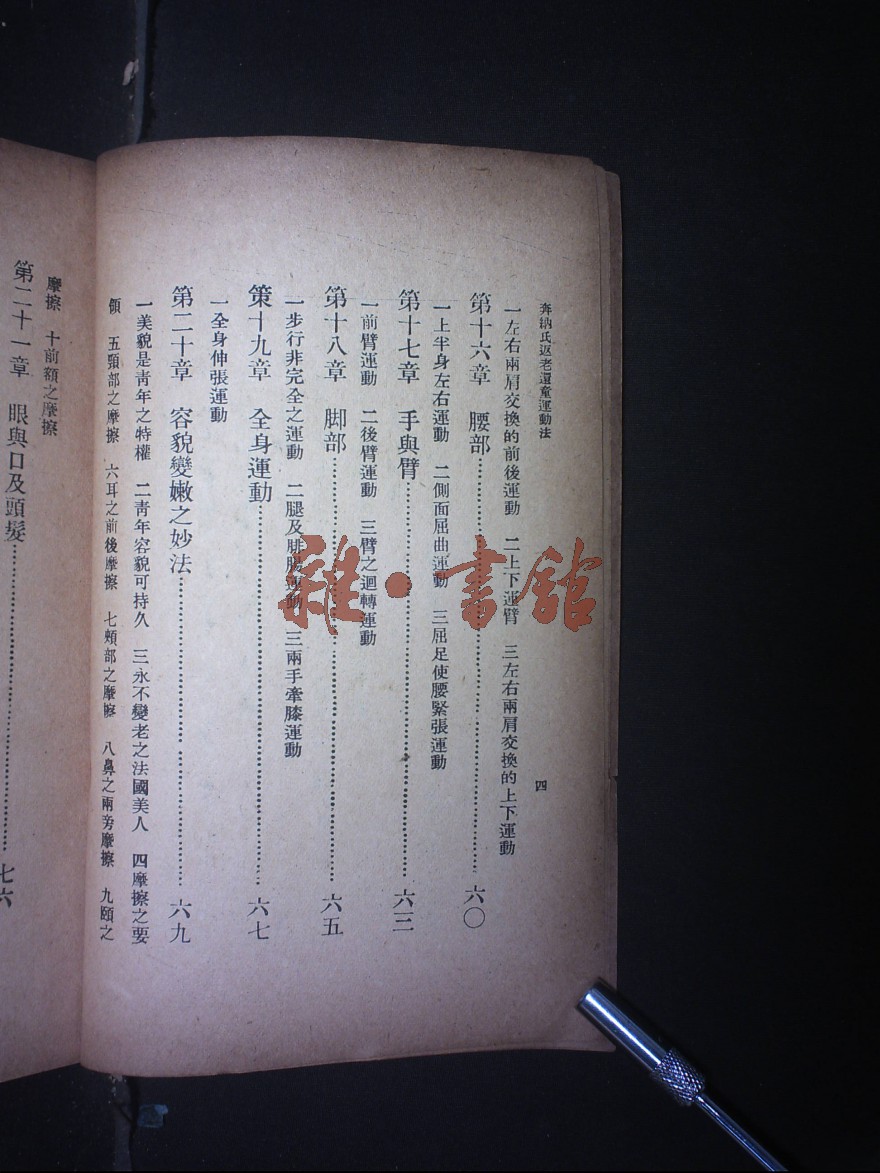 奔納氏返老還童運動法
四
一左右兩肩交換的前後運動　二上下運臂　三左右兩肩交換的上下運動
第十六章　腰部⋯⋯⋯⋯⋯⋯⋯⋯⋯⋯六〇
一上半身左右運動　二側面屈曲運動　三屈足使腰緊張運動
第十七章　手與臂⋯⋯⋯⋯⋯⋯⋯⋯⋯⋯六三
一前臂運動　二後臂運動　三臂之迴轉運動
第十八章　脚部⋯⋯⋯⋯⋯⋯⋯⋯⋯⋯六五
一步行非完全之運動　二腿及腓腸運動　三兩手牽膝運動
策十九章　全身運動⋯⋯⋯⋯⋯⋯⋯⋯⋯⋯六七
一全身伸張運動
第二十章　容貌變嫩之妙法⋯⋯⋯⋯⋯⋯⋯⋯⋯⋯六九
一美貌是靑年之特權　二靑年容貌可持久　三永不變老之法國美人　四摩擦之要
領　五頸部之摩擦　六耳之前後摩擦　七頰部之摩擦　八鼻之兩旁摩擦　九頤之
摩擦　十前額之摩擦
第二十一章　眼與口及頭髮⋯⋯⋯⋯⋯⋯⋯⋯⋯⋯七六
雜·書館